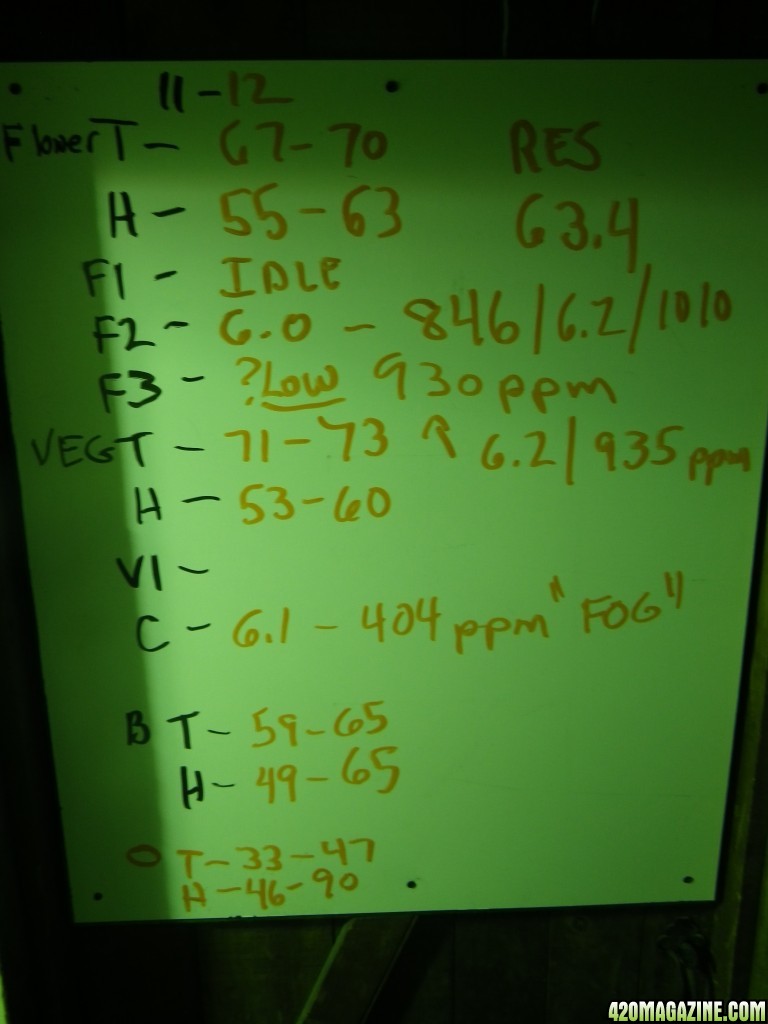 11-12
Flower T - 67-70 RES
H - 55-63 63.4
F1 - IDLE
F2 - 6.0 - 846/6.2/1010
F3 - ?Low 930 ppm
VEG T - 71-73 ↑ 6.2/935 ppm
H - 53-60
V1 -
C - 6.1 - 404 ppm "FOG"
B T - 59-65
H - 49-65
O T-33-47
H-46-90
420MAGAZINE.COM